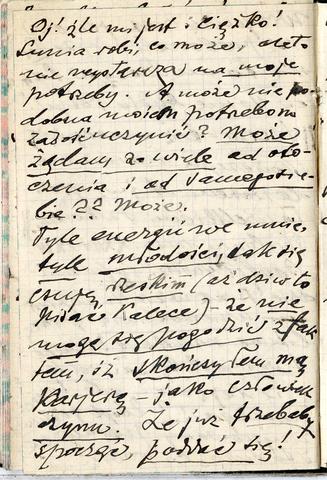 Oj! źle mi jest i ciężko!
Lunia robi, co może, ale to
nie wystarcza na moje
potrzeby. A może nie po-
dobna moim potrzebom
zadośćuczynić? Może
żądam za wiele od oto-
czenia i od samego sie-
bie?? Może.
Tyle energii we mnie,
tyle młodości, tak się
czuję rześkim (aż dziw to
mówić kalece) – że nie
mogę się pogodzić z fak
tem, iż skończyłem mą
karjerę – jako człowiek
czynu. Że już trzebaby
spocząć, poddać się!